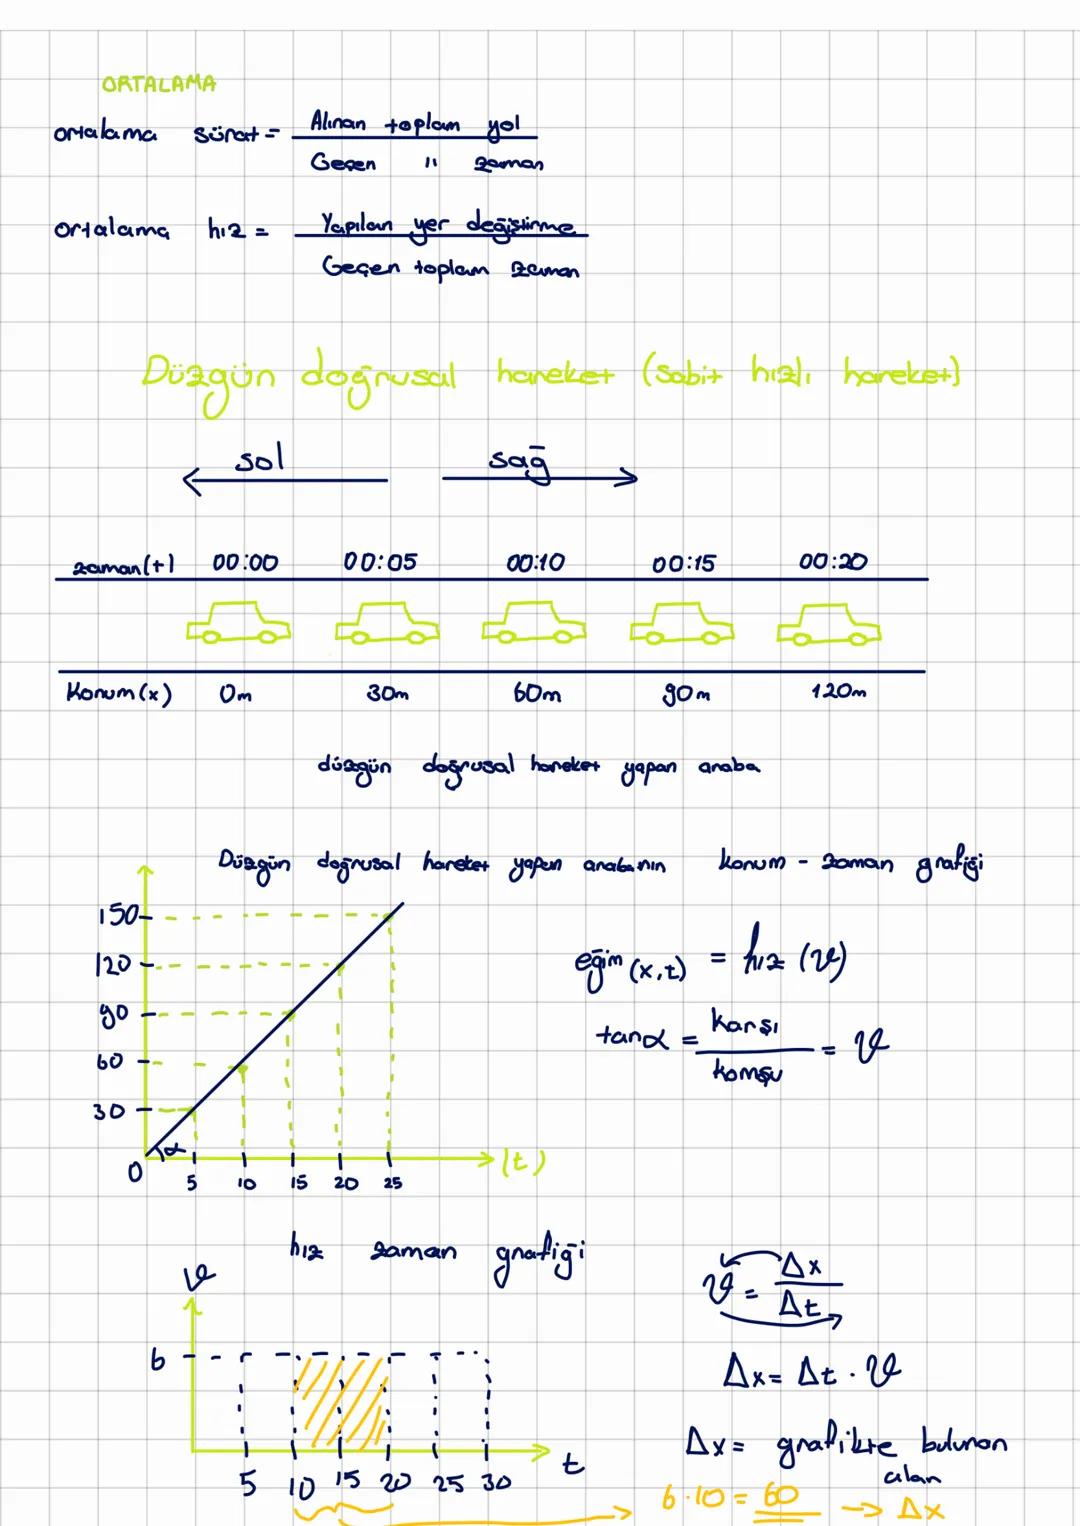 ORTALAMA
ortalama sürat = Alınan toplam yol
Geçen " zaman
ortalama hız = Yapılan yer değiştirme
Geçen toplam zaman
Düzgün doğrusal hareket (sabit hızlı hareket)
sol sağ
zaman(t) 00:00 00:05 00:10 00:15 00:20
Konum(x) 0m 30m 60m 90m 120m
düzgün doğrusal hareket yapan araba
Düzgün doğrusal hareket yapan arabanın konum - zaman grafiği
150
120
90
60
30
0 α
5 10 15 20 25
(t)
eğim (x,t) = hız (v)
tanα = Karşı
komşu
= v
hız zaman grafiği
v
6
5 10 15 20 25 30
t
v = Δx
Δt
Δx = Δt . v
Δx = grafikte bulunan
alan
6.10 = 60 → Δx